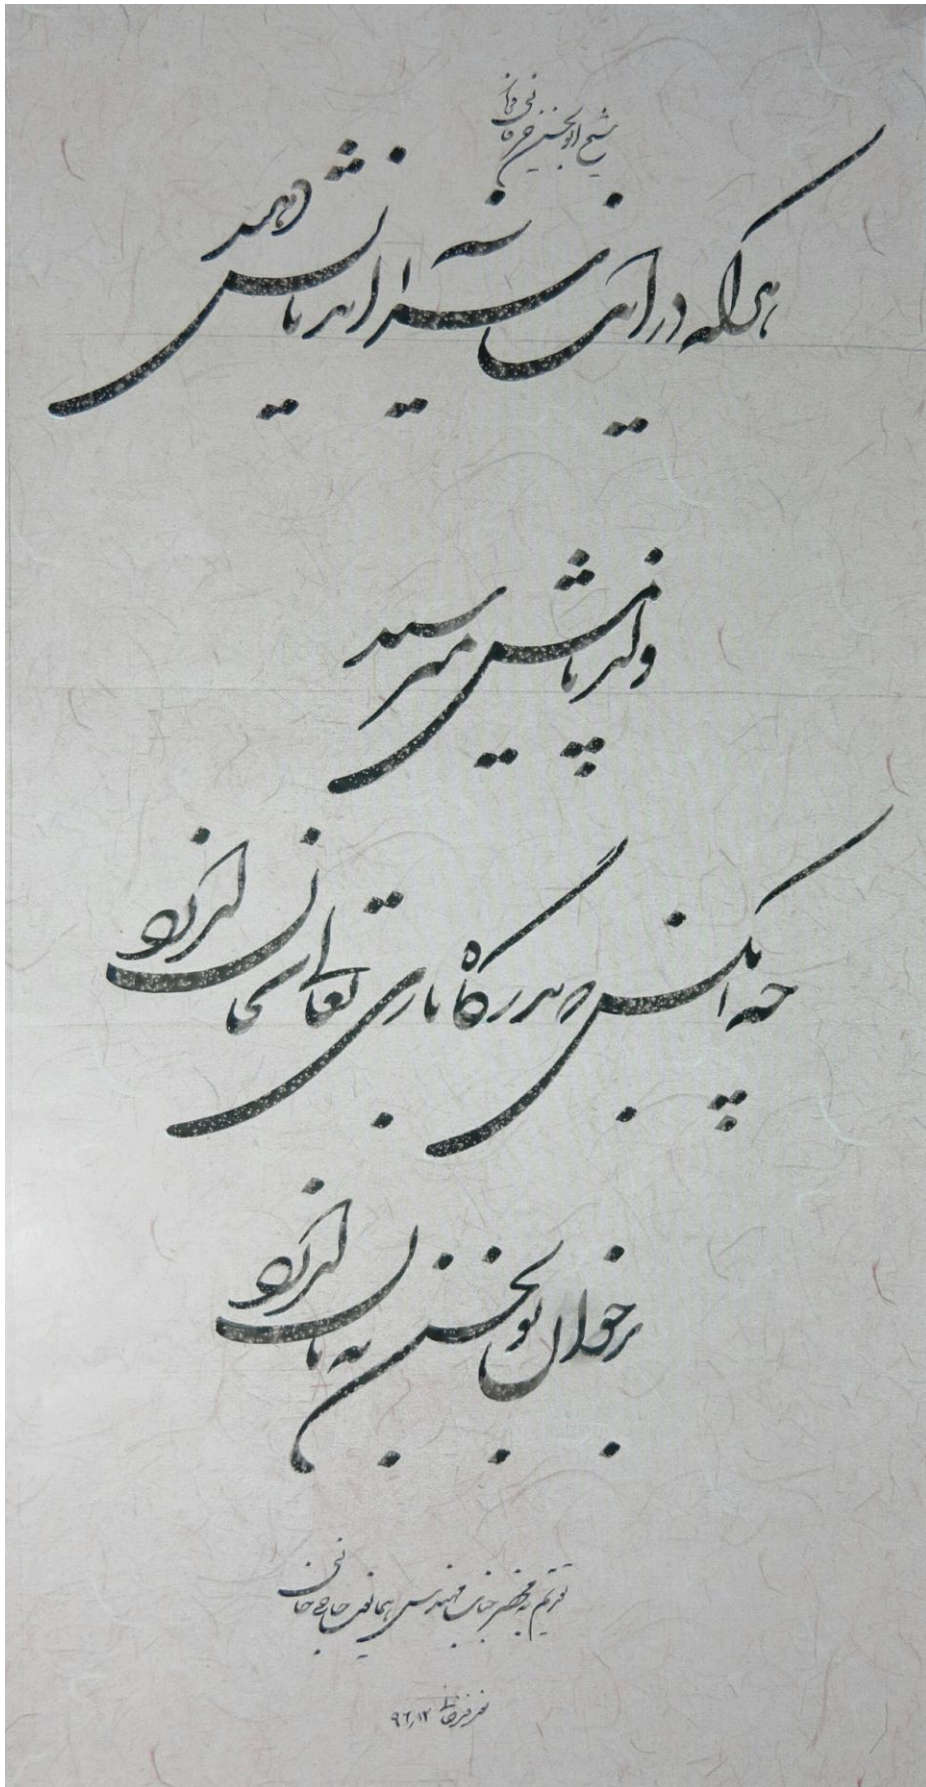 شیخ ابوالحسن خرقانی
هر که در این سرا آید نانش دهید
و از ایمانش مپرسید
چه آنکس که بدرگاه باری تعالی به جان ارزد
بر خوان بوالحسن به نان ارزد
تقدیم به محضر جناب مهندس
۹۶٫۱۲